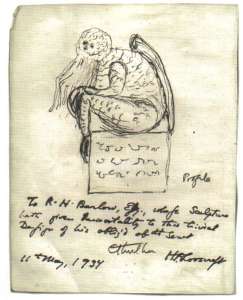 Profile
To R. H. Barlow, Esq., whose Sculpture
hath given Immortality to this trivial
Design of his oblig'd obt Servt
Cthulhu HPLovecraft
11th May, 1934